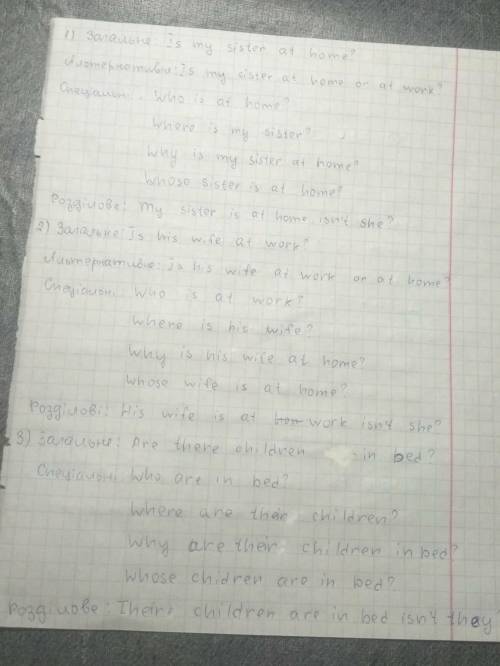 1) Загальне: Is my sister at home?
Альтернативне: Is my sister at home or at work?
Спеціальні: Who is at home?
Where is my sister?
Why is my sister at home?
Whose sister is at home?
Розділове: My sister is at home isn't she?
2) Загальне: Is his wife at work?
Альтернативне: Is his wife at work or at home?
Спеціальні: Who is at work?
Where is his wife?
Why is his wife at home?
Whose wife is at home?
Розділові: His wife is at work isn't she?
3) Загальне: Are there children in bed?
Спеціальні: Who are in bed?
Where are their children?
Why are their children in bed?
Whose chidren are in bed?
Розділове: Their children are in bed isn't they?